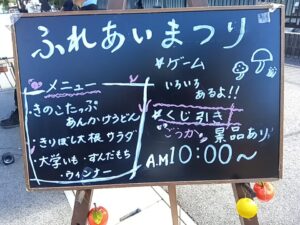 ふれあいまつり
メニュー
・きのこたっぷ
あんかけうどん
・きりぼし大根 サラダ
・大学いも・すんだもち
・ウィンナー
ゲーム
いろいろ
あるよ!!
くじ引き
ごうか 景品あり
A.M10:00〜